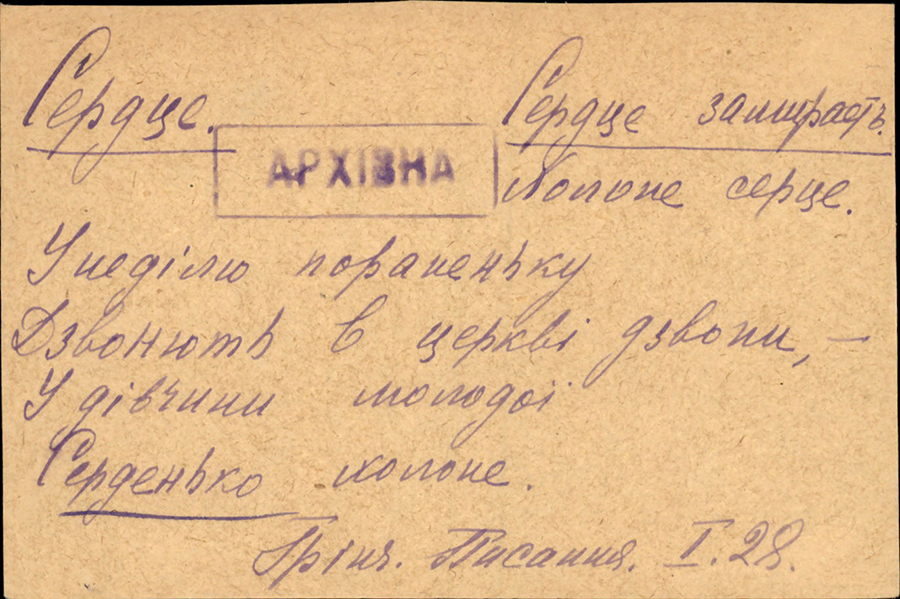 Сердце. Сердце замірають.
АРХІВНА
Холоне серце.
У неділю пораненьку
Дзвонють в церкві дзвони, —
У дівчини молодої
Серденько холоне.
Грінч. Писання. I. 28.